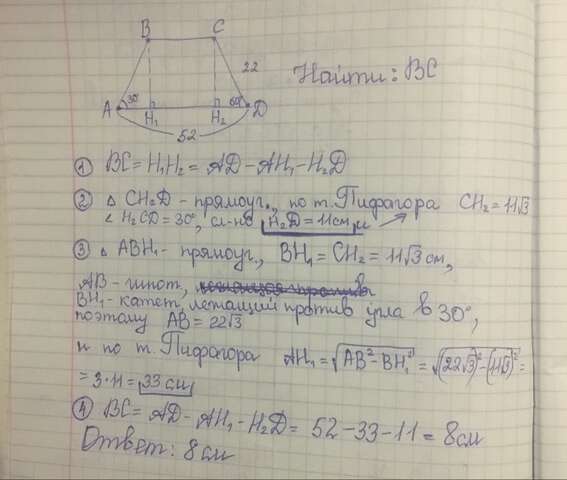 B C
22
Найти: BC
A 30° H₁ H₂ 60° D
52
① BC = H₁H₂ = AD - AH₁ - H₂D
② △ CH₂D - прямоуг., по т. Пифагора CH₂ = 11√3
∠ H₂CD = 30°, сл-но H₂D = 11см и
③ △ ABH₁ - прямоуг., BH₁ = CH₂ = 11√3 см,
AB - гипот,
BH₁ - катет, лежащий против угла в 30°,
поэтому AB = 22√3
и по т. Пифагора AH₁ = √(AB² - BH₁²) = √((22√3)² - (11√3)²) =
= 3·11 = 33 см
④ BC = AD - AH₁ - H₂D = 52 - 33 - 11 = 8см
Ответ: 8 см